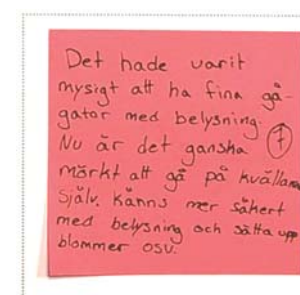 Det hade varit
mysigt att ha fina gå-
gator med belysning.
Nu är det ganska 7
mörkt att gå på kvällarna
själv. Känns mer säkert
med belysning och sätta upp
blommer osv.